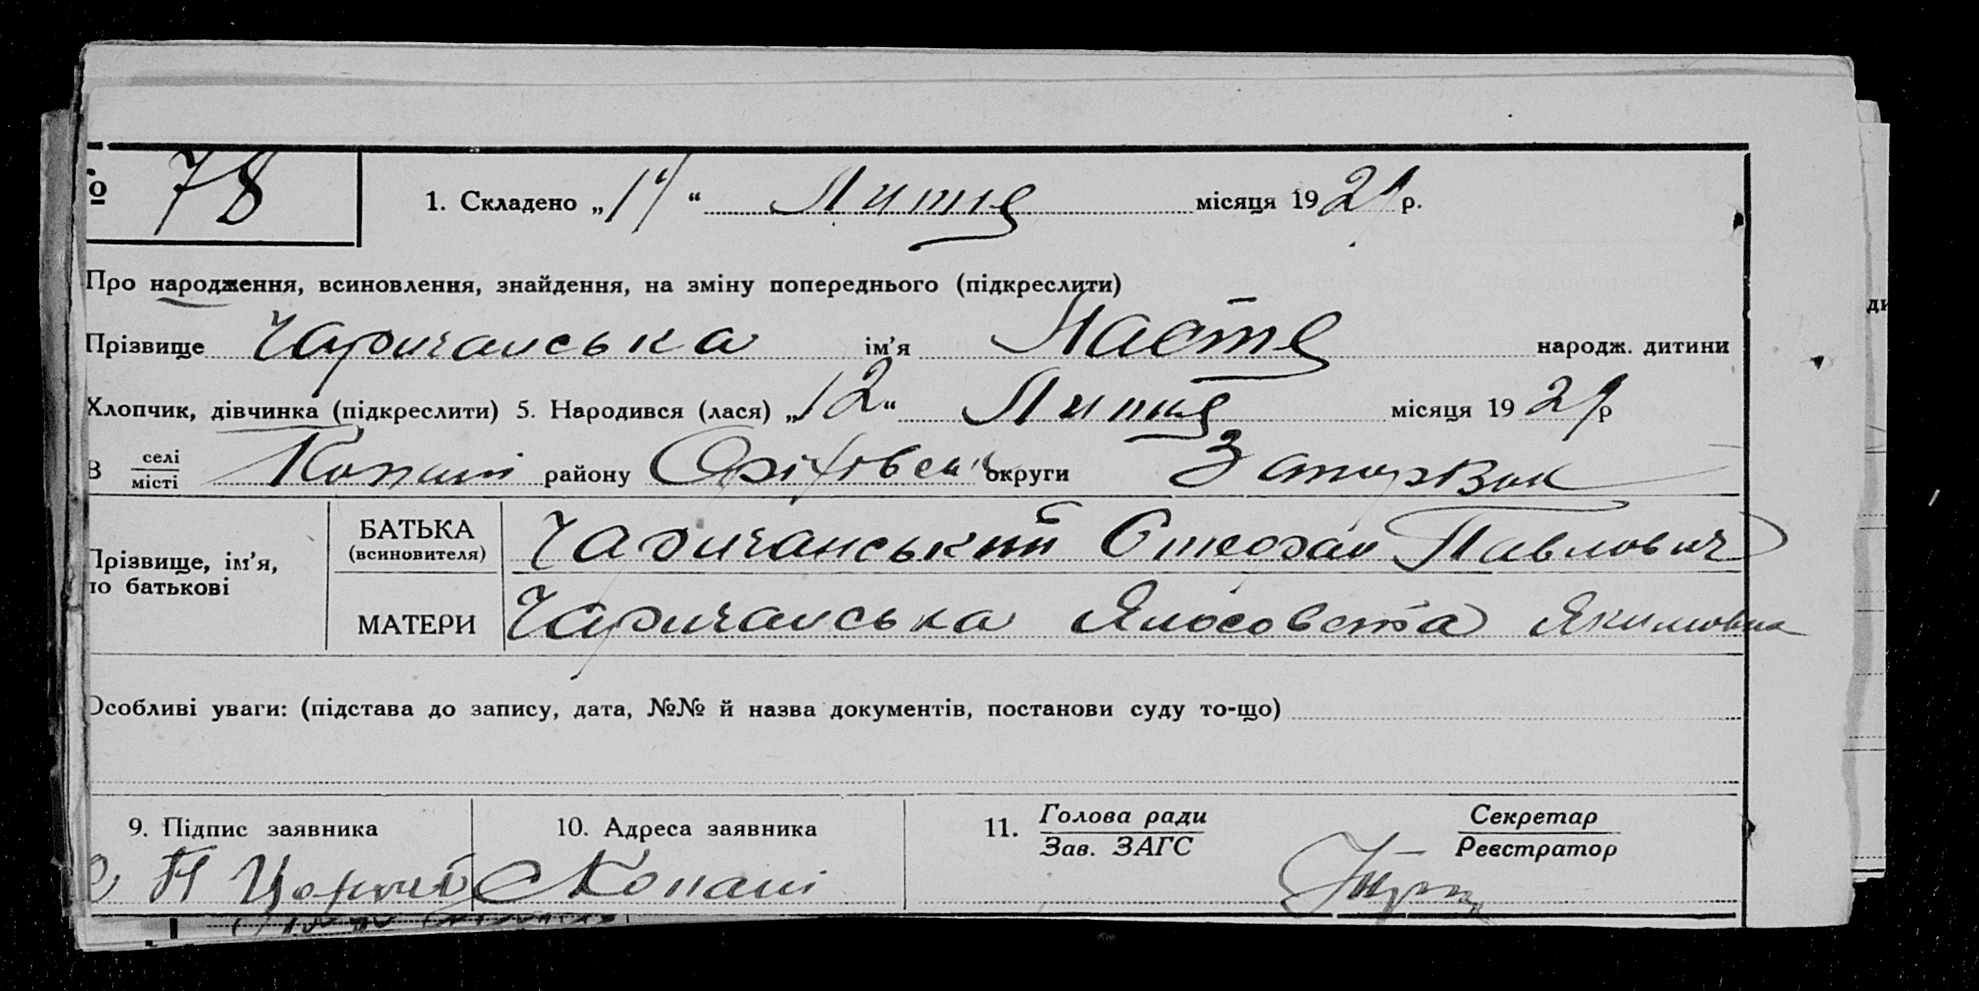 № 78 1. Складено „ “ Липня місяця 192 р.
Про народження, всиновлення, знайдення, на зміну попереднього (підкреслити)
Прізвище Чаричанська ім’я Настя народж. дитини
Хлопчик, дівчинка (підкреслити) 5. Народився (лася) „12“ Липня місяця 192 р
в селі
місті Копані району округи
Прізвище, ім’я,
по батькові
БАТЬКА
(всиновителя)
Чаричанський Павлович
МАТЕРИ Чаричанська Якимовна
Особливі уваги: (підстава до запису, дата, №№ й назва документів, постанови суду то-що)
9. Підпис заявника 10. Адреса заявника 11. Голова ради
Зав. ЗАГС
Секретар
Реєстратор
С П Копані